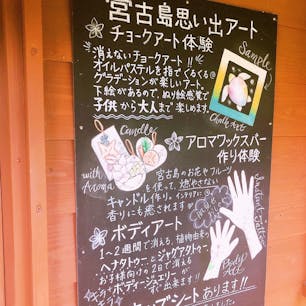 宮古島思い出アート
チョークアート体験
Sample
消えないチョークアート!!
オイルパステルを指でくるくる@
グラデーションが楽しいアート。
下絵があるので、ぬり絵感覚で
子供から大人まで楽しめます。
Chalk Art
Candle
with Aroma
アロマワックスバー
作り体験
宮古島のお花やフルーツ
を使って、燃やさない
キャンドル作り。インテリアに
香りにも癒されます
ボディアート
1〜2週間で消える、植物由来の
ヘナタトゥーとジャグアタトゥー。
お子様向けの2日で消える
ボディージュエリーが
出来ます!!
Body Art
シートあります!!